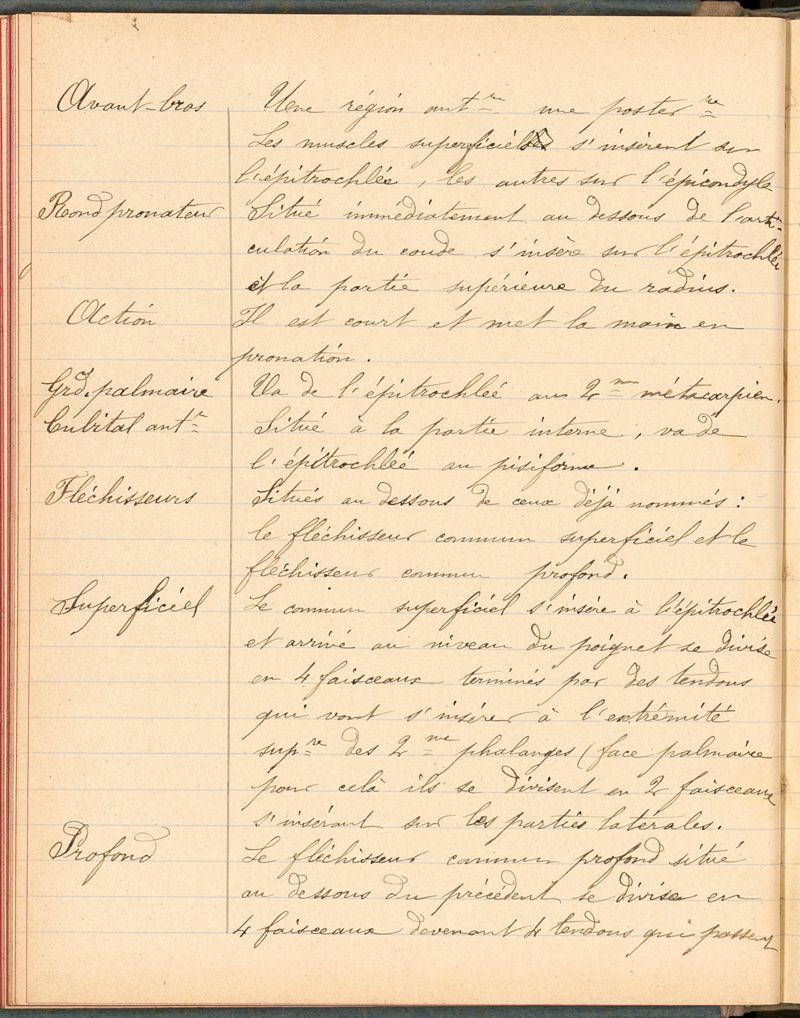 Avant-bras Une région ant^re une poster^re
Les muscles superficiels s'insèrent sur
l'épitrochlée, les autres sur l'épicondyle
Rond pronateur Situé immédiatement au dessous de l'arti-
culation du coude s'insère sur l'épitrochlée
et la partie supérieure du radius.
Action Il est court et met la main en
pronation.
Grd. palmaire Va de l'épitrochlée au 2^me métacarpien.
Cubital ant^r Situé à la partie interne, va de
l'épitrochlée au pisiforme.
Fléchisseurs Situés au dessous de ceux déjà nommés :
le fléchisseur commun superficiel et le
fléchisseur commun profond.
Superficiel Le commun superficiel s'insère à l'épitrochlée
et arrivé au niveau du poignet se divise
en 4 faisceaux terminés par des tendons
qui vont s'insérer à l'extrémité
sup^re des 2^me phalanges (face palmaire
pour celà ils se divisent en 2 faisceaux
s'insérant sur les parties latérales.
Profond Le fléchisseur commun profond situé
au dessous du précédent se divise en
4 faisceaux devenant 4 tendons qui passent